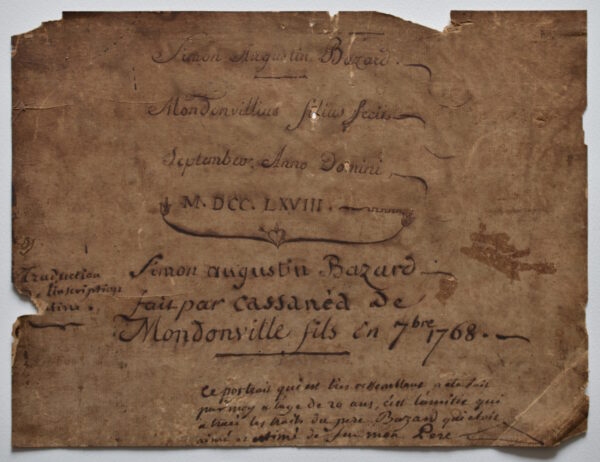 Simon Augustin Bazard.
Mondonvillius filius fecit
September Anno Domini
M. DCC. LXVIII.
Traduction
L'inscription
Simon augustin Bazard
fait par cassanéa De
Mondonville fils En 7bre 1768.
Ce portrait qui est très ressemblant a été fait
par moy a l'age de 20 ans, c'est l'amitié qui
a tracé les traits du pere Bazard qui étoit
aimé et estimé de feu mon Pere